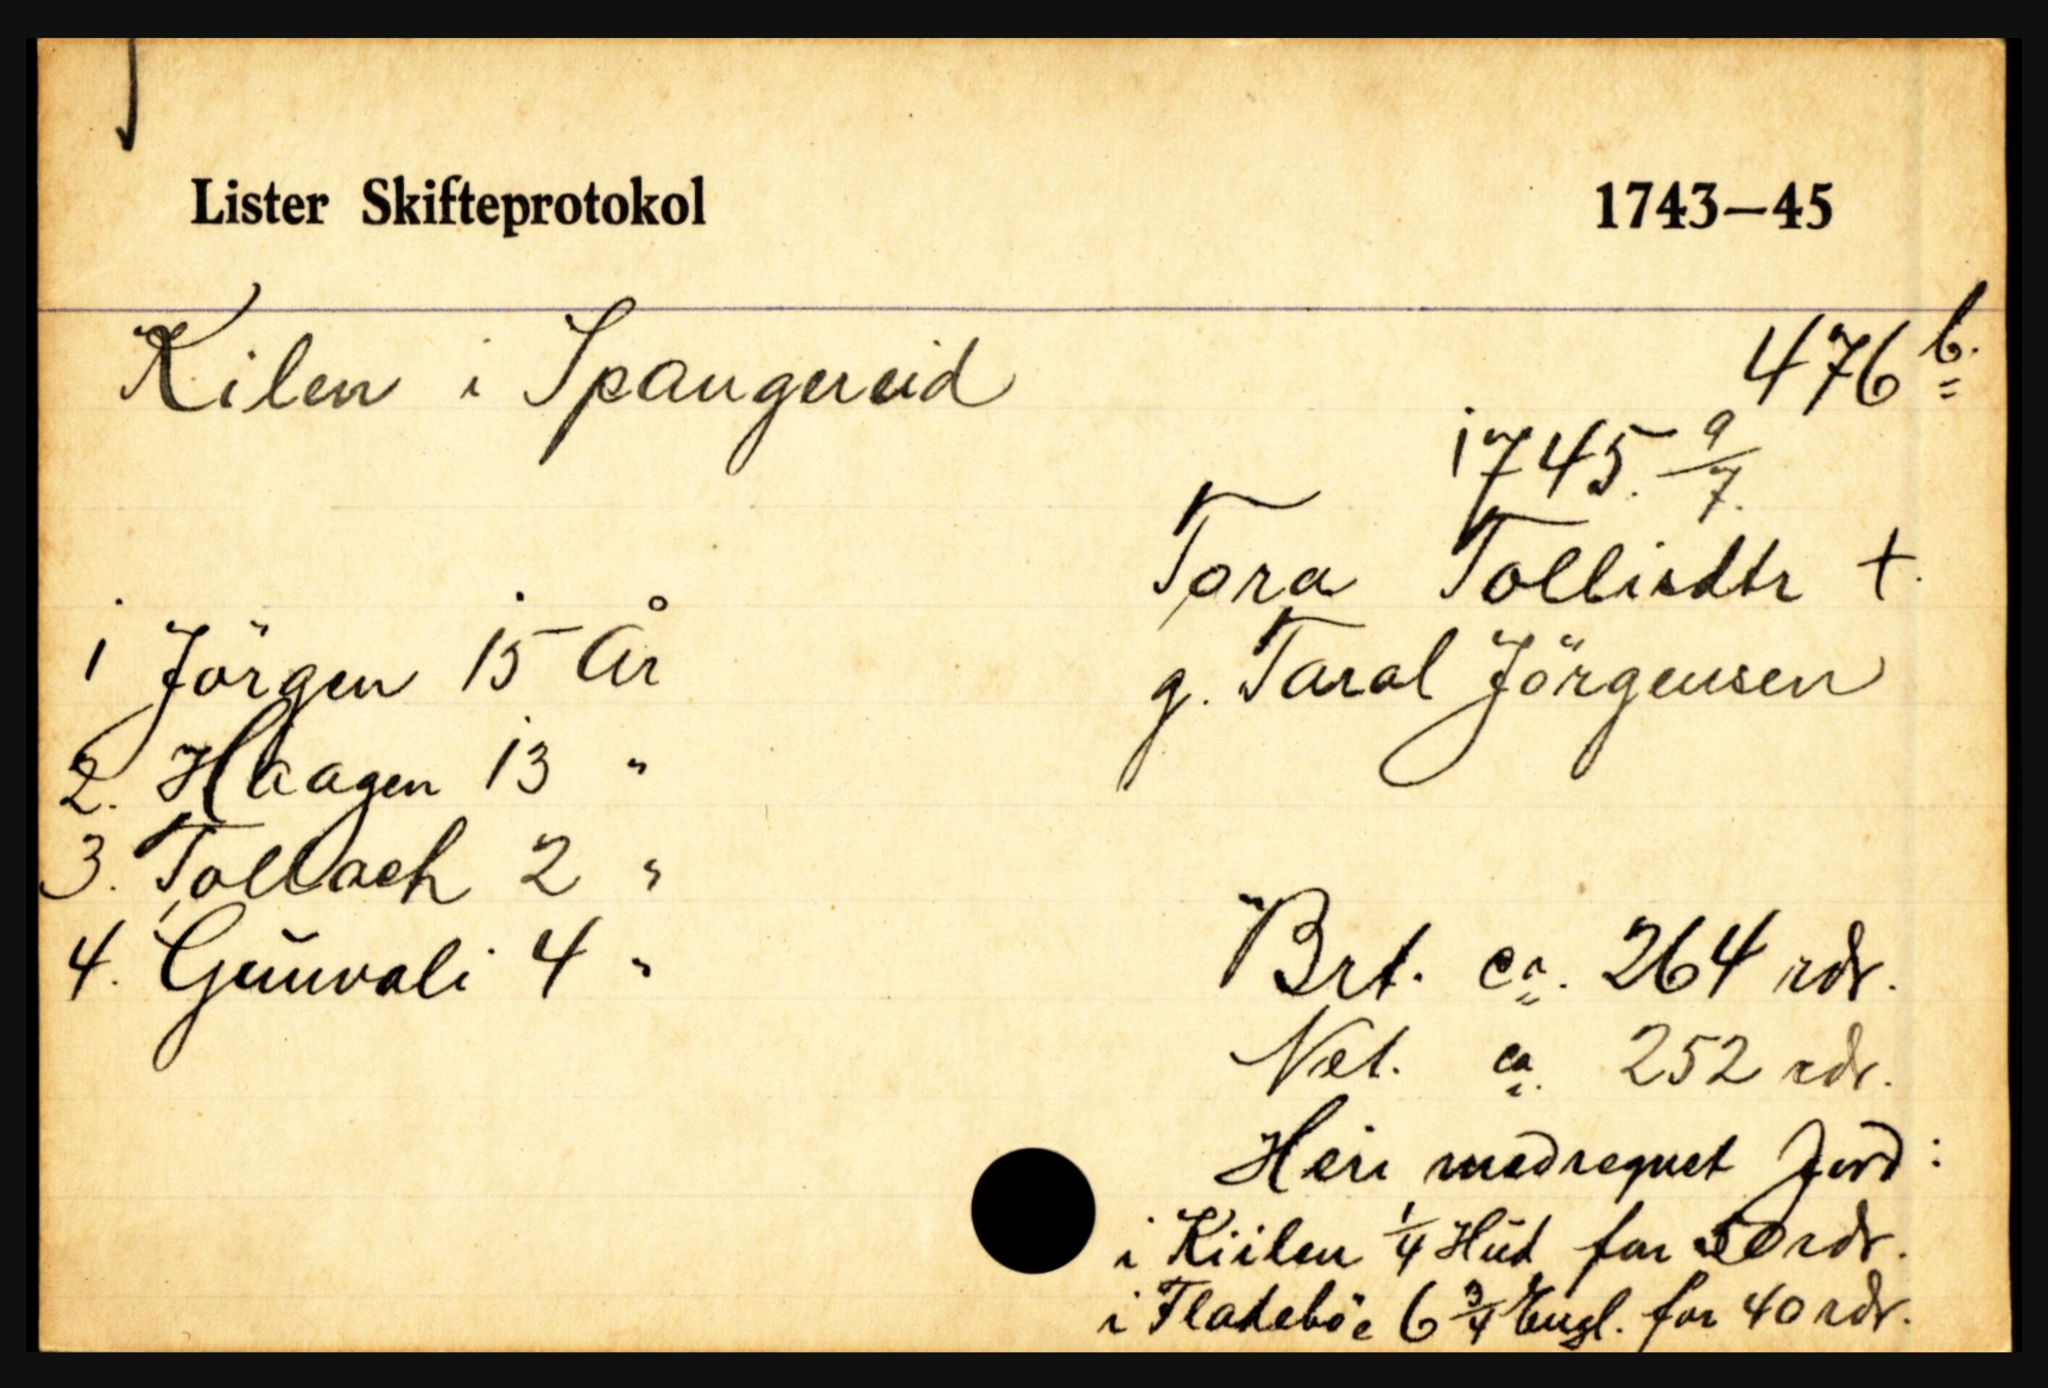 Lister Skifteprotokol 1743—45
Kilen i Spangereid 476 b.
1745. 9/7.
Tora Tollisdtr †.
g. Taral Jörgensen
1 Jörgen 15 År
2. Haagen 13 "
3. Tollach 2 "
4. Gunvali 4 "
Brt. ca. 264 rdr.
Net. ca. 252 rdr.
Heri medregnet Jord:
i Kiilen 1/4 Hud for 50 rdr.
i Fladeböe 6 3/4 Engl. for 40 rdr.